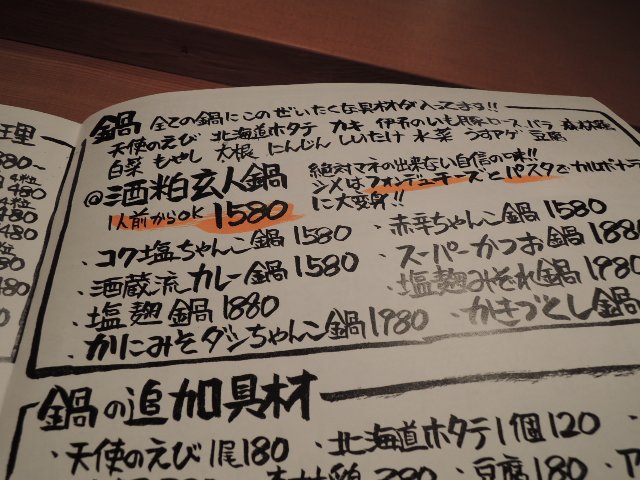 鍋 全ての鍋にこのぜいたくな具材が入ってます!!
天使のえび 北海道ホタテ カキ 伊予のいも豚ロース バラ 森林鶏
白菜 もやし 大根 にんじん しいたけ 水菜 うすアゲ 豆腐
@酒粕玄人鍋
1人前からOK 1580
絶対マネの出来ない自信の味!!
シメはフォンデューチーズとパスタでカルボナーラ
に大変身!!
・コク塩ちゃんこ鍋 1580
・赤辛ちゃんこ鍋 1580
・酒蔵流カレー鍋 1580
・スーパーかつお鍋 1880
・塩麹鍋 1880
・塩麹みぞれ鍋 1980
・かにみそダシちゃんこ鍋 1980
・かきづくし鍋
鍋の追加具材
・天使のえび 1尾180
・北海道ホタテ 1個120
280
・豆腐180
理
880~
480
480
480
480